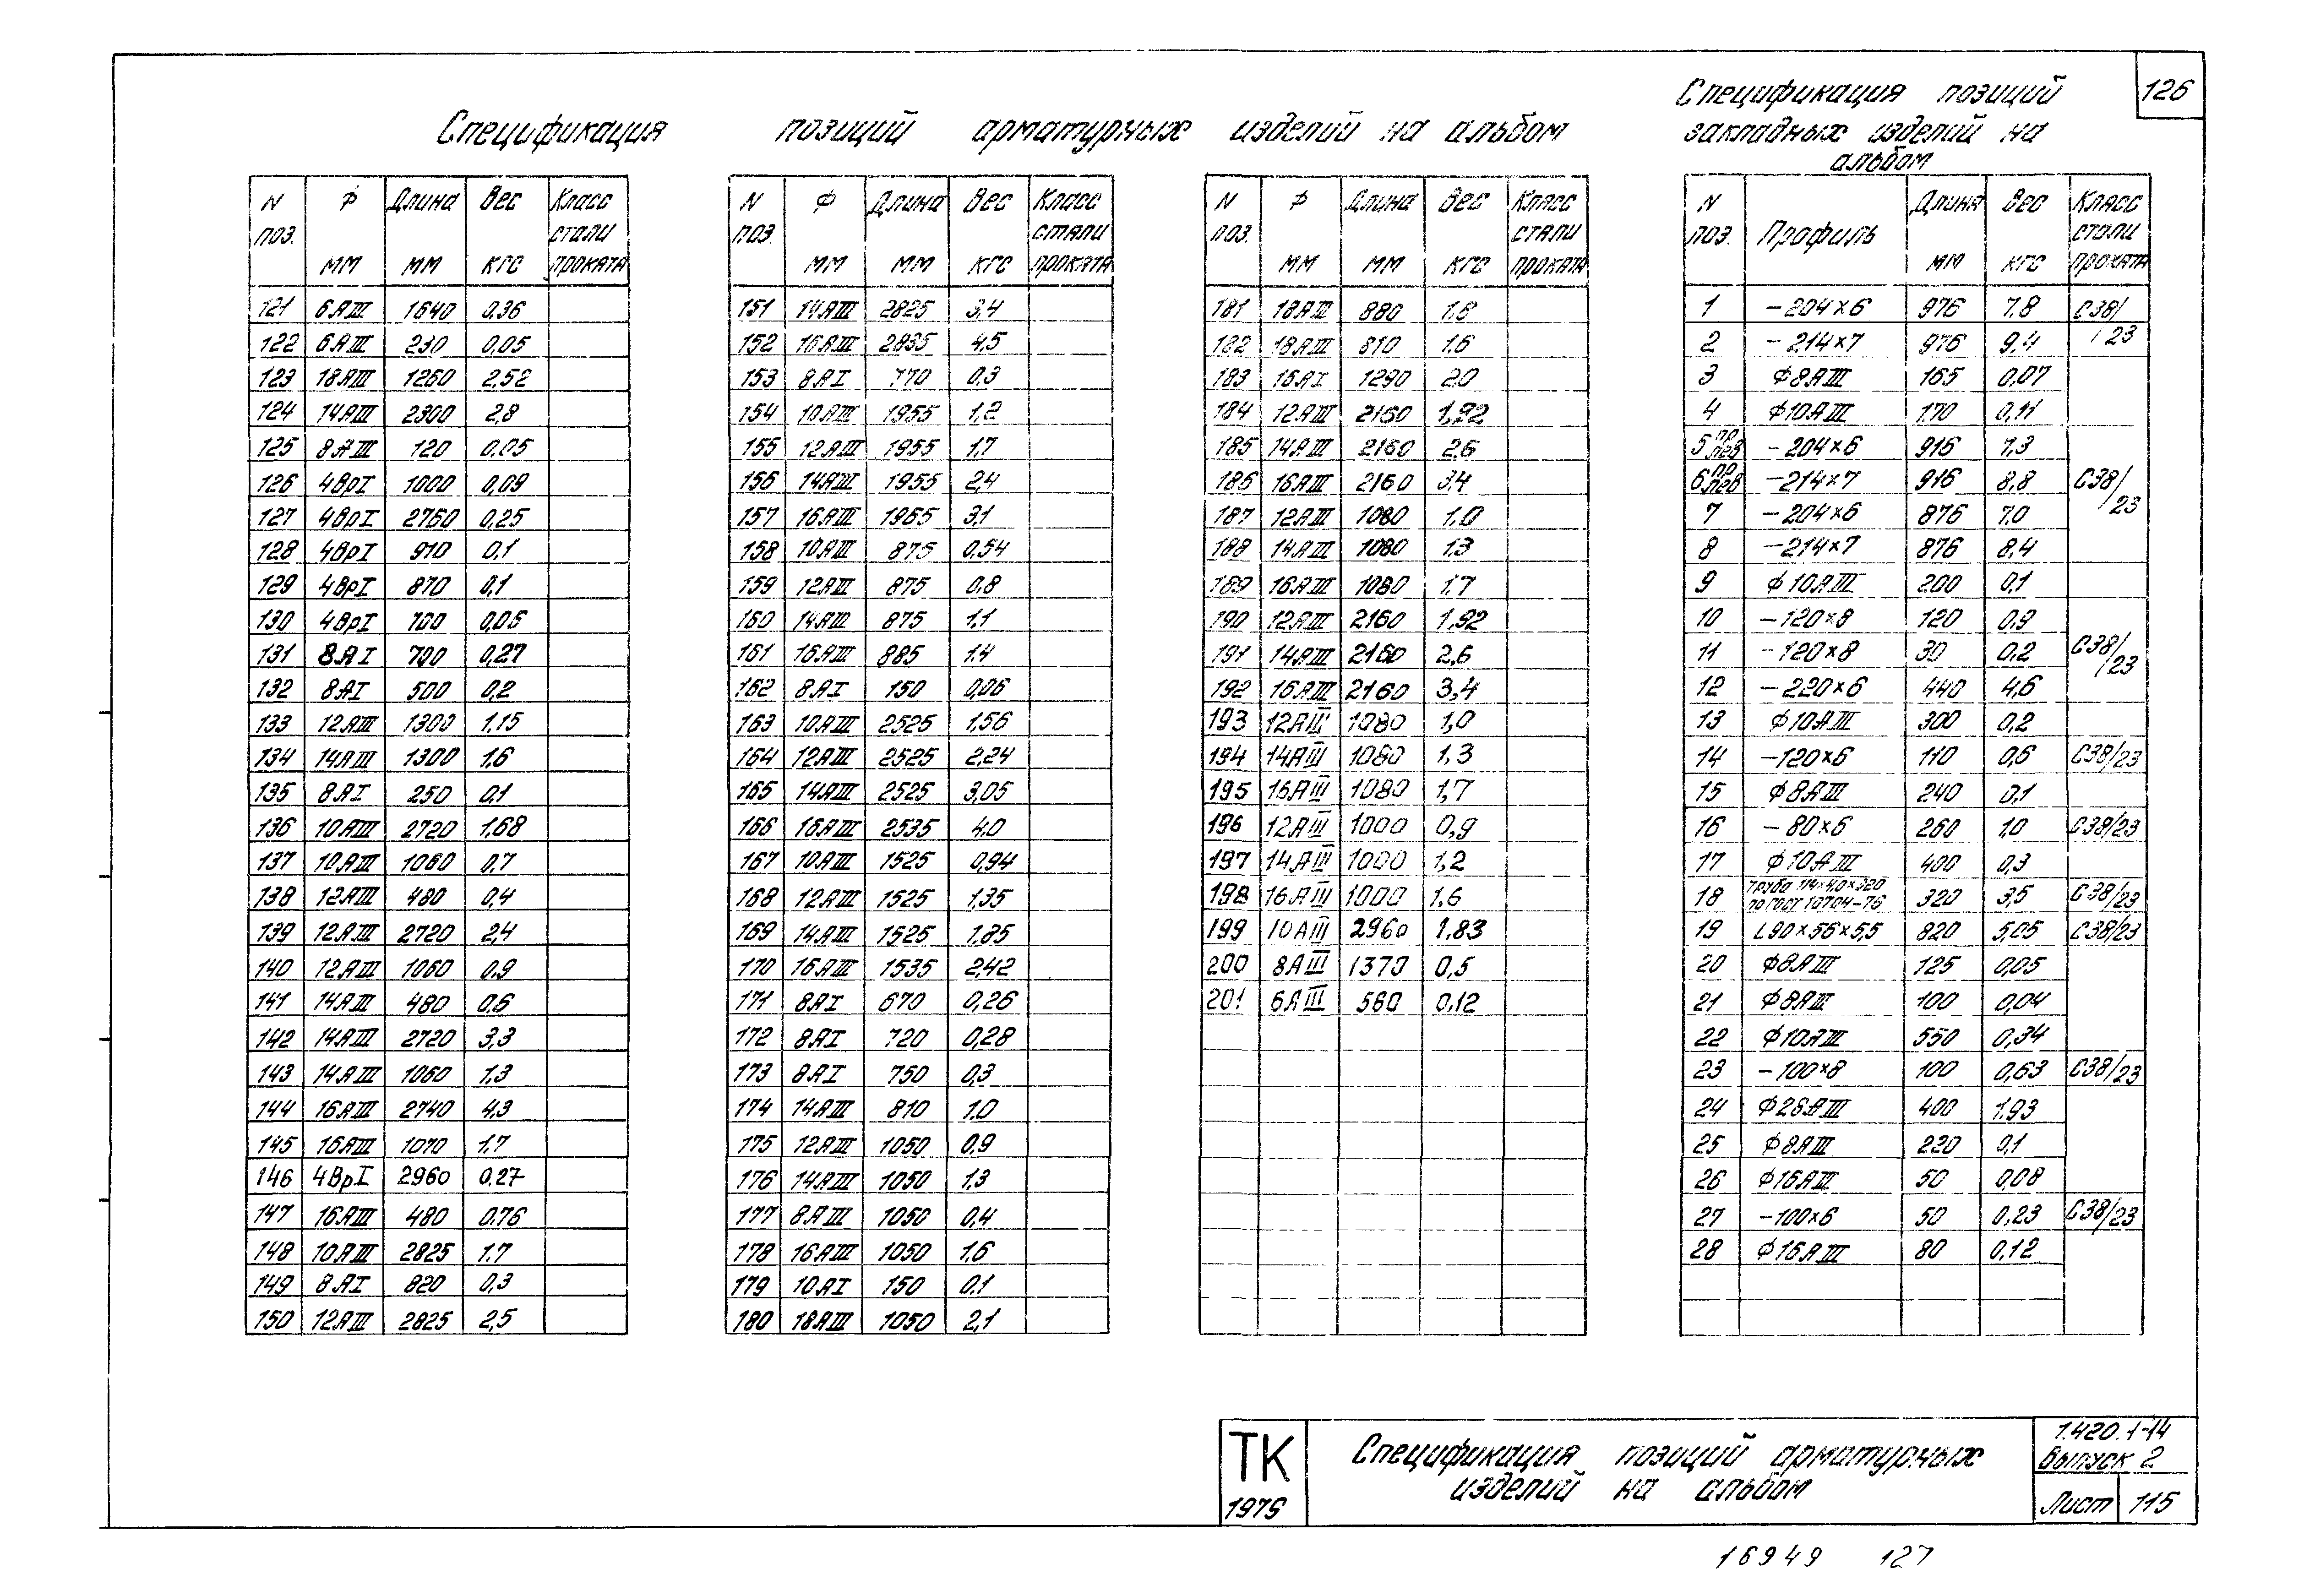 126
Спецификация позиций арматурных изделий на альбом
N поз. | Ф мм | Длина мм | Вес кгс | Класс стали проката
121 | 6АIII | 1640 | 0,36
122 | 6АIII | 230 | 0,05
123 | 18АIII | 1260 | 2,52
124 | 14АIII | 2300 | 2,8
125 | 8АIII | 120 | 0,05
126 | 4ВрI | 1000 | 0,09
127 | 4ВрI | 2760 | 0,25
128 | 4ВрI | 910 | 0,1
129 | 4ВрI | 870 | 0,1
130 | 4ВрI | 700 | 0,06
131 | 8АI | 700 | 0,27
132 | 8АI | 500 | 0,2
133 | 12АIII | 1300 | 1,15
134 | 14АIII | 1300 | 1,6
135 | 8АI | 250 | 0,1
136 | 10АIII | 2720 | 1,68
137 | 10АIII | 1060 | 0,7
138 | 12АIII | 480 | 0,4
139 | 12АIII | 2720 | 2,4
140 | 12АIII | 1060 | 0,9
141 | 14АIII | 480 | 0,6
142 | 14АIII | 2720 | 3,3
143 | 14АIII | 1060 | 1,3
144 | 16АIII | 2740 | 4,3
145 | 16АIII | 1070 | 1,7
146 | 4ВрI | 2960 | 0,27
147 | 16АIII | 480 | 0,76
148 | 10АIII | 2825 | 1,7
149 | 8АI | 820 | 0,3
150 | 12АIII | 2825 | 2,5
N поз. | Ф мм | Длина мм | Вес кгс | Класс стали проката
151 | 14АIII | 2825 | 3,4
152 | 16АIII | 2835 | 4,5
153 | 8АI | 770 | 0,3
154 | 10АIII | 1955 | 1,2
155 | 12АIII | 1955 | 1,7
156 | 14АIII | 1955 | 2,4
157 | 16АIII | 1965 | 3,1
158 | 10АIII | 875 | 0,54
159 | 12АIII | 875 | 0,8
160 | 14АIII | 875 | 1,1
161 | 16АIII | 885 | 1,4
162 | 8АI | 150 | 0,06
163 | 10АIII | 2525 | 1,56
164 | 12АIII | 2525 | 2,24
165 | 14АIII | 2525 | 3,05
166 | 16АIII | 2535 | 4,0
167 | 10АIII | 1525 | 0,94
168 | 12АIII | 1525 | 1,35
169 | 14АIII | 1525 | 1,85
170 | 16АIII | 1535 | 2,42
171 | 8АI | 670 | 0,26
172 | 8АI | 720 | 0,28
173 | 8АI | 750 | 0,3
174 | 14АIII | 810 | 1,0
175 | 12АIII | 1050 | 0,9
176 | 14АIII | 1050 | 1,3
177 | 8АIII | 1050 | 0,4
178 | 16АIII | 1050 | 1,6
179 | 10АI | 150 | 0,1
180 | 18АIII | 1050 | 2,1
N поз. | Ф мм | Длина мм | Вес кгс | Класс стали проката
181 | 18АIII | 880 | 1,8
182 | 18АIII | 810 | 1,6
183 | 16АI | 1290 | 2,0
184 | 12АIII | 2160 | 1,92
185 | 14АIII | 2160 | 2,6
186 | 16АIII | 2160 | 3,4
187 | 12АIII | 1080 | 1,0
188 | 14АIII | 1080 | 1,3
189 | 16АIII | 1080 | 1,7
190 | 12АIII | 2160 | 1,92
191 | 14АIII | 2160 | 2,6
192 | 16АIII | 2160 | 3,4
193 | 12АIII | 1080 | 1,0
194 | 14АIII | 1080 | 1,3
195 | 16АIII | 1080 | 1,7
196 | 12АIII | 1000 | 0,9
197 | 14АIII | 1000 | 1,2
198 | 16АIII | 1000 | 1,6
199 | 10АIII | 2960 | 1,83
200 | 8АIII | 1370 | 0,5
201 | 6АIII | 560 | 0,12
Спецификация позиций
закладных изделий на
альбом
N поз. | Профиль | Длина мм | Вес кгс | Класс стали проката
1 | –204×6 | 976 | 7,8 | С38/23
2 | –214×7 | 976 | 9,4
3 | Ф8АIII | 165 | 0,07
4 | Ф10АIII | 170 | 0,11
5 пр лев | –204×6 | 916 | 7,3
6 пр лев | –214×7 | 916 | 8,8 | С38/23
7 | –204×6 | 876 | 7,0
8 | –214×7 | 876 | 8,4
9 | Ф10АIII | 200 | 0,1
10 | –120×8 | 120 | 0,9
11 | –120×8 | 30 | 0,2 | С38/23
12 | –220×6 | 440 | 4,6
13 | Ф10АIII | 300 | 0,2
14 | –120×6 | 110 | 0,6 | С38/23
15 | Ф8АIII | 240 | 0,1
16 | –80×6 | 260 | 1,0 | С38/23
17 | Ф10АIII | 400 | 0,3
18 | Труба 114×4,0×320 по ГОСТ 10704–76 | 320 | 3,5 | С38/23
19 | L90×56×5,5 | 820 | 5,05 | С38/23
20 | Ф8АIII | 125 | 0,05
21 | Ф8АIII | 100 | 0,04
22 | Ф10АIII | 550 | 0,34
23 | –100×8 | 100 | 0,63 | С38/23
24 | Ф28АIII | 400 | 1,93
25 | Ф8АIII | 220 | 0,1
26 | Ф16АIII | 50 | 0,08
27 | –100×6 | 50 | 0,23 | С38/23
28 | Ф16АIII | 80 | 0,12
ТК
1975
Спецификация позиций арматурных
изделий на альбом
1.420.1-14
Выпуск 2
Лист 115
16949 127